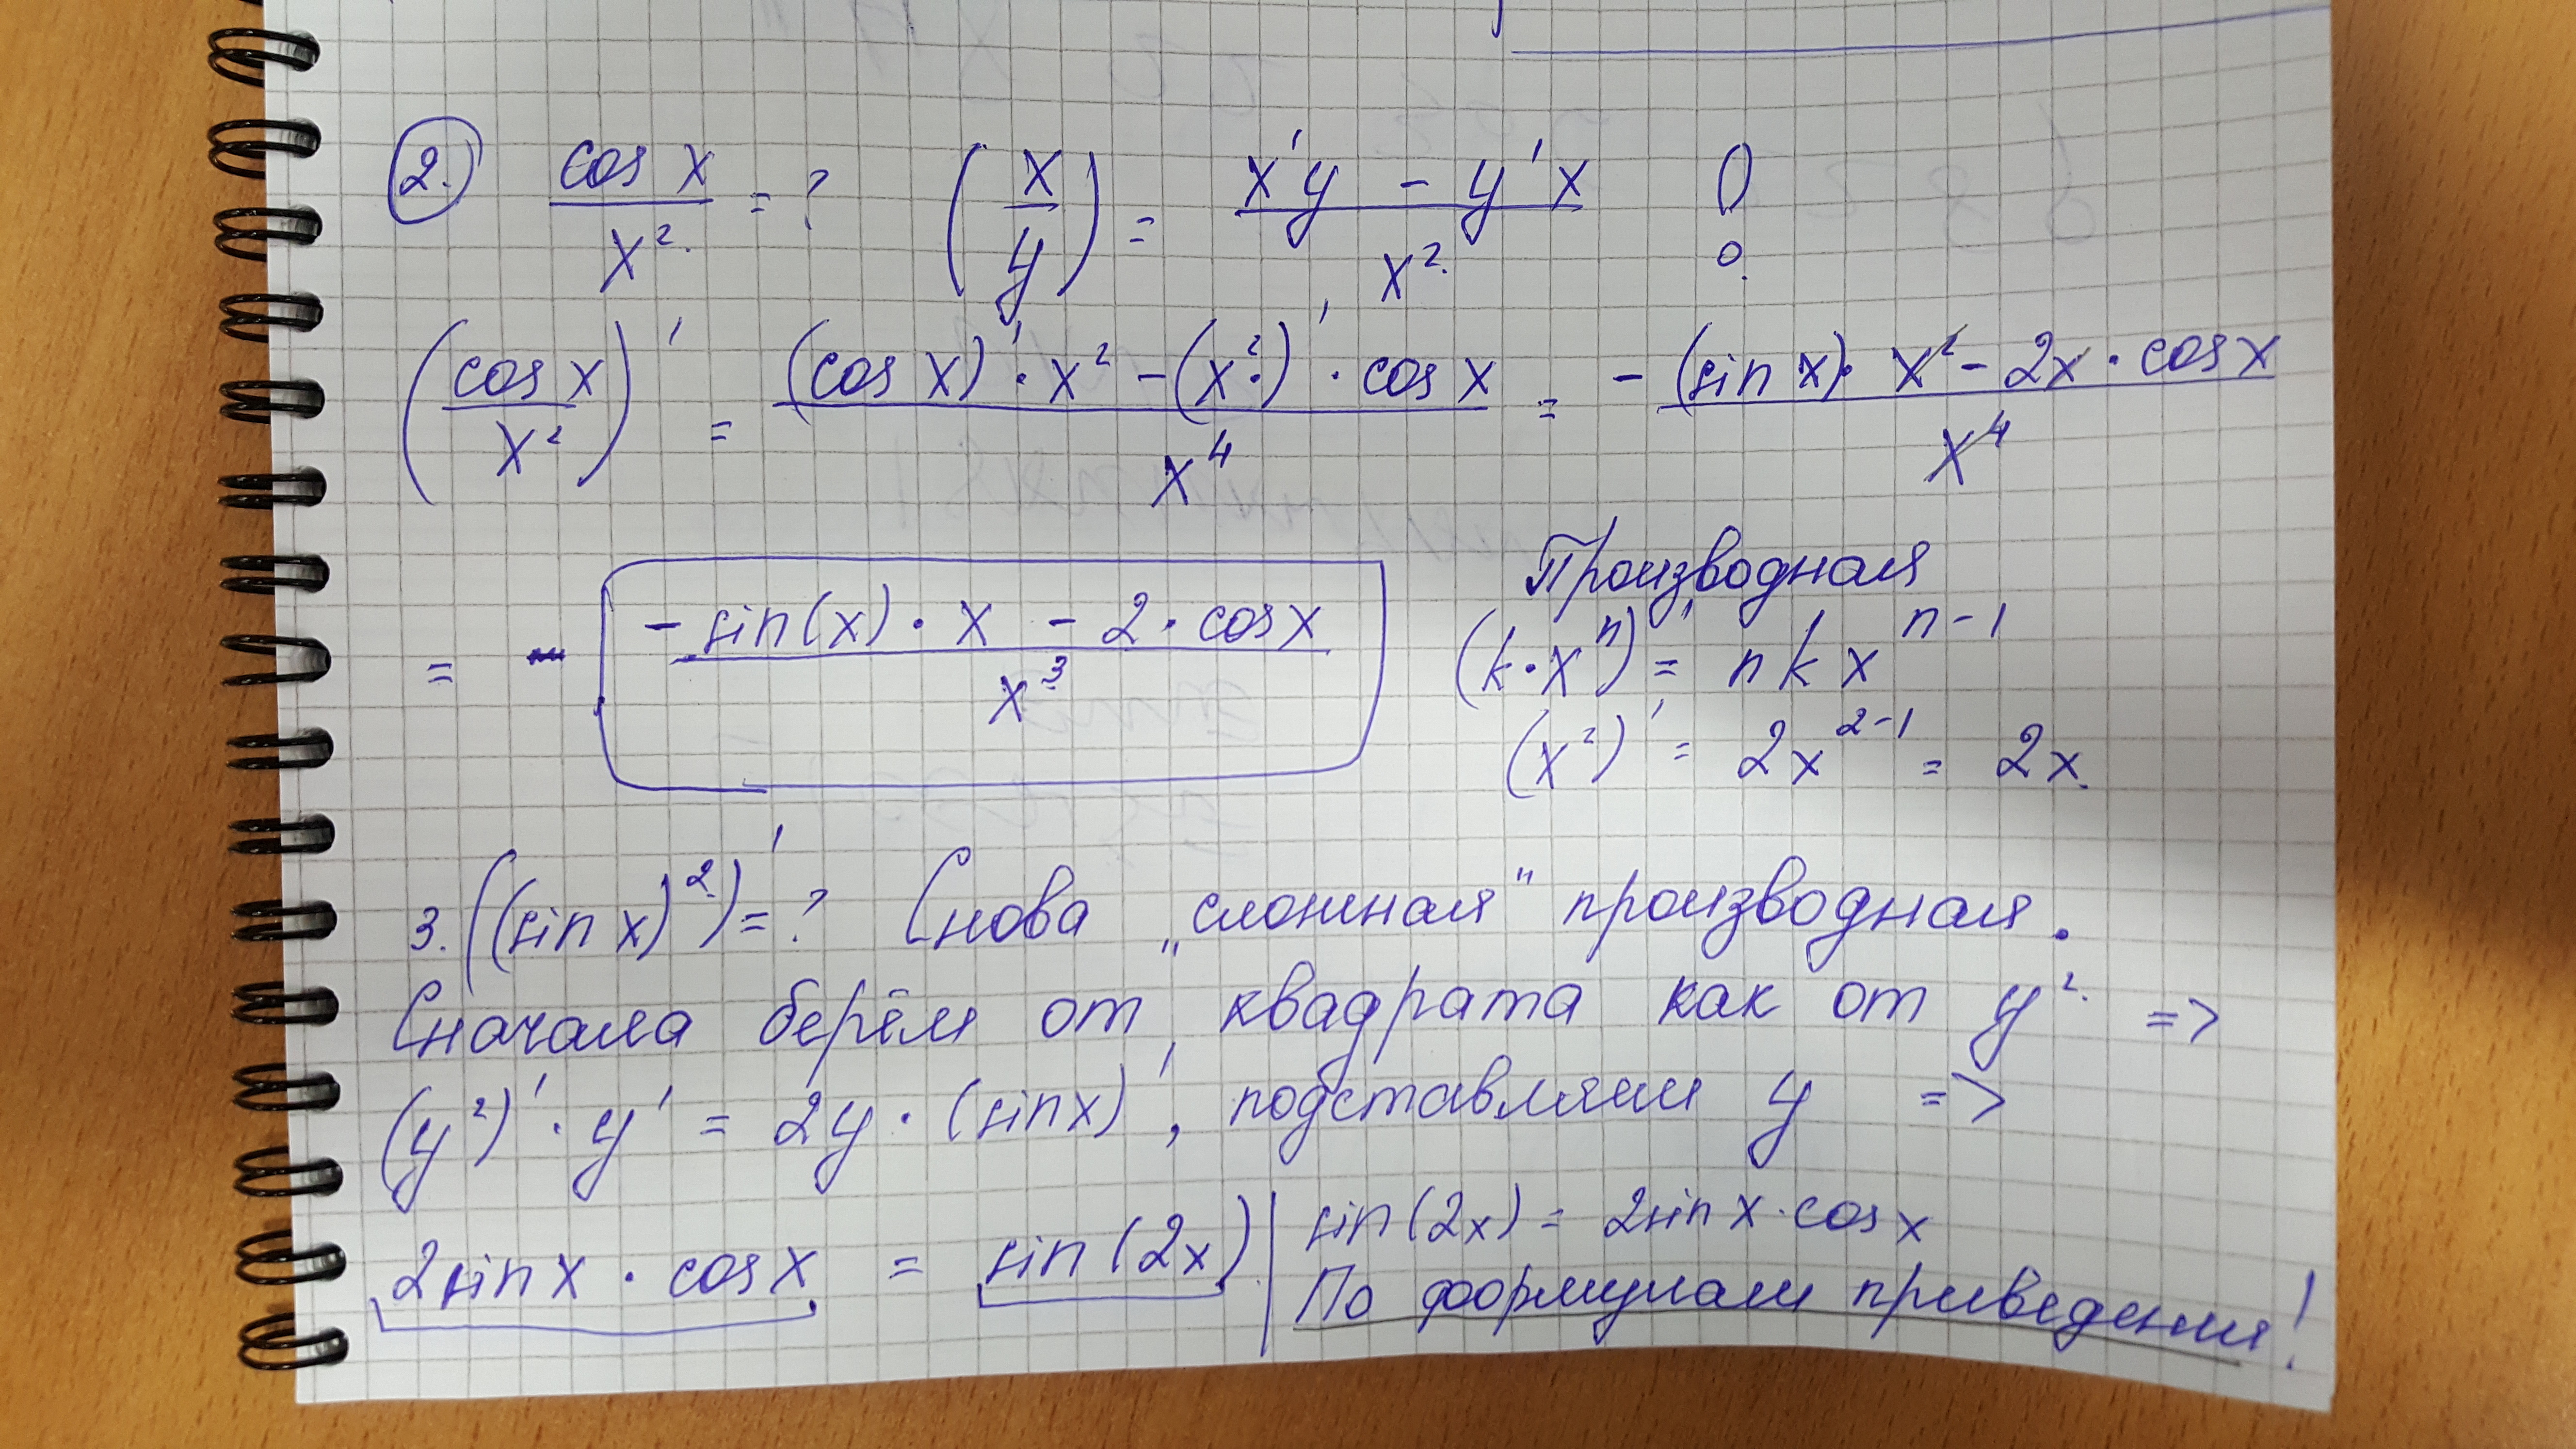 2. cos x / x² = ? (x / y)' = x'y - y'x / x² !
(cos x / x²)' = (cos x)' · x² - (x²)' · cos x / x⁴ = - (sin x) · x² - 2x · cos x / x⁴
= - sin(x) · x - 2 · cos x / x³
Производная
(k · xⁿ)' = n k xⁿ⁻¹
(x²)' = 2x²⁻¹ = 2x.
3. ((sin x)²)' = ? Снова „сложная" производная.
Сначала берём от квадрата как от y² =>
(y²)' · y' = 2y · (sin x)', подставляем y =>
2 sin x · cos x = sin(2x) | sin(2x) = 2sin x · cos x
По формулам приведения!